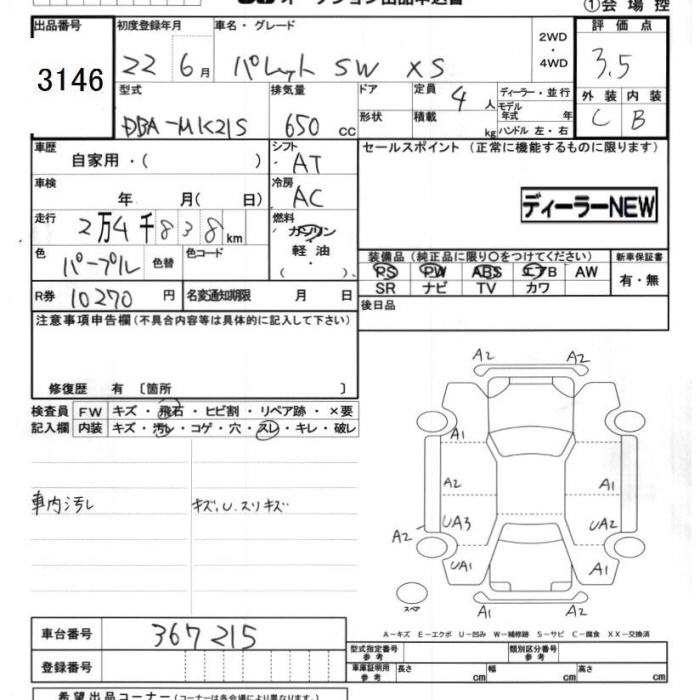 オークション出品申込書
①会場控
出品番号 初度登録年月 車名・グレード 評価点
3146 22 6月 パレット SW XS 2WD ・ 4WD 3.5
型式 排気量 ドア 定員 4人 ディーラー・並行 外装 内装
DBA-MK21S 650 cc 形状 積載 kg モデル年式 年 C B
ハンドル 左・右
車歴 シフト セールスポイント (正常に機能するものに限ります)
自家用・( ) AT
車検 冷房
年 月( 日) AC ディーラーNEW
走行 2万4千838km 燃料
ガソリン
軽油
・( )
色 パープル 色替 色コード
装備品 (純正品に限り○をつけてください) 新車保証書
PS PW ABS エアB AW 有・無
SR ナビ TV カワ
R券 10270円 名変通知期限 月 日 後日品
注意事項申告欄(不具合内容等は具体的に記入して下さい)
修復歴 有 〔箇所 〕
検査員 FW キズ・飛石・ヒビ割・リペア跡・×要
記入欄 内装 キズ・汚レ・コゲ・穴・スレ・キレ・破レ
車内汚レ キズ、U、スリキズ
A2 A2
A1
A2 A1
UA3 UA2
A2
UA1 A1
スペア A1 A2
A-キズ E-エクボ U-凹み W-補修跡 S-サビ C-腐食 XX-交換済
車台番号 367215
型式指定番号 参考 類別区分番号 参考
登録番号
車庫証明用 参考 長さ cm 幅 cm 高さ cm
希望出品コーナー(コーナーは各会場により異なります。)